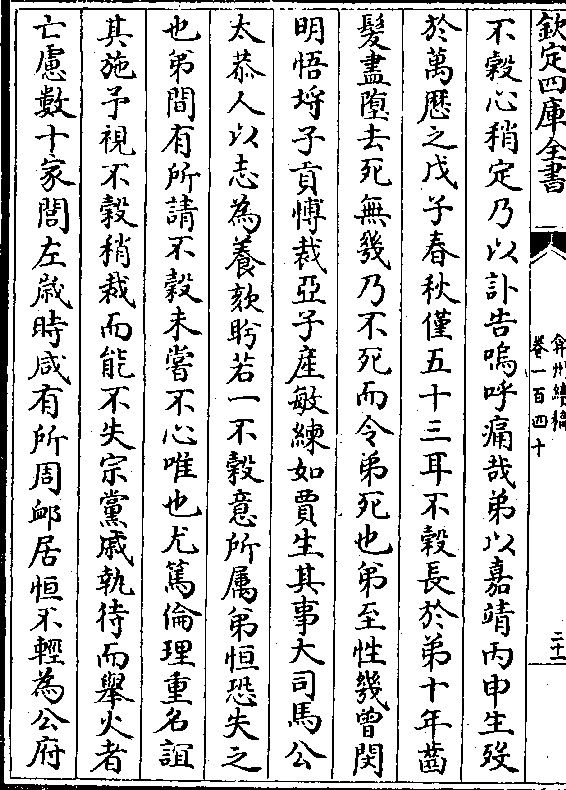 欽定四庫全書
弇州續稿
卷一百四十
二十一
不穀心稍定乃以訃告嗚呼痛哉弟以嘉靖丙申生歿
於萬歴之戊子春秋僅五十三耳不穀長於弟十年齒
髮盡墮去死無幾乃不死而令弟死也弟至性幾曾閔
明悟埒子貢慱裁亞子産敏練如賈生其事大司馬公
太恭人以志為養欬盻若一不穀意所属弟恒恐失之
也弟間有所請不穀未嘗不心唯也尤篤倫理重名誼
其施予視不穀稍裁而能不失宗黨戚執待而舉火者
亡慮數十家閭左嵗時咸有所周䘏居恒不輕為公府